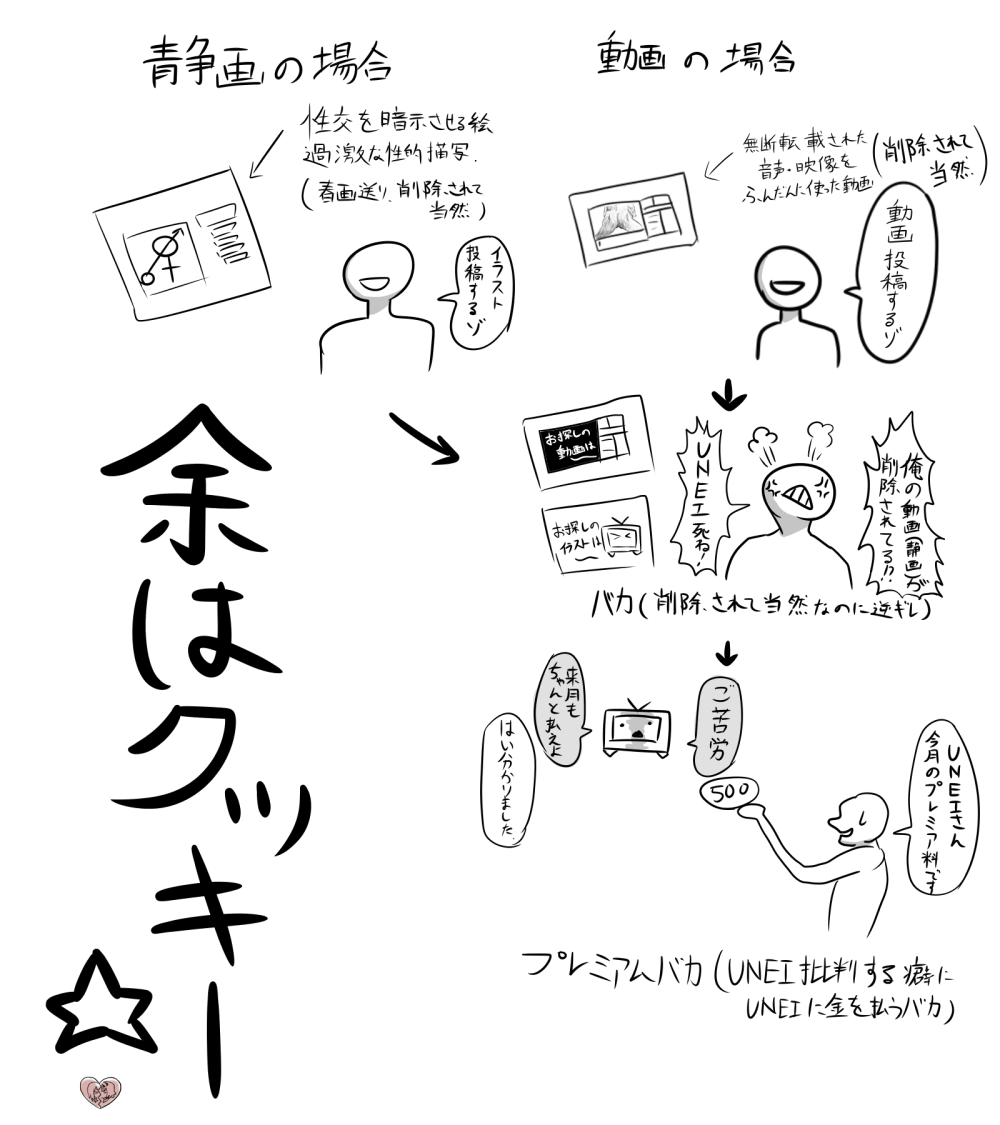 青争画の場合
性交を暗示させる絵
過激な性的描写
(春画送り、削除されて
当然)
イラスト
投稿するゾ
動画の場合
無断転載された
音声・映像を
ふんだんに使った動画
(削除されて
当然)
動画投稿するゾ
お探しの
動画は
お探しの
イラストは
UNEI死ね!
俺の動画(静画)が
削除されてる!?
バカ(削除されて当然なのに逆ギレ)
UNEIさん
今月のプレミア料です
500
ご苦労
来月も
ちゃんと払えよ
はい分かりました
プレミアムバカ(UNEI批判する癖に
UNEIに金を払うバカ)
余はクッキー☆